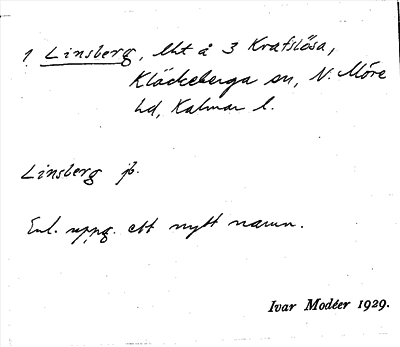 1 Linsberg, lht å 3 Krafslösa,
Kläckeberga sn, N. Möre
hd, Kalmar l.
Linsberg
Enl. uppg. ett nytt namn.
Ivar Modéer 1929.